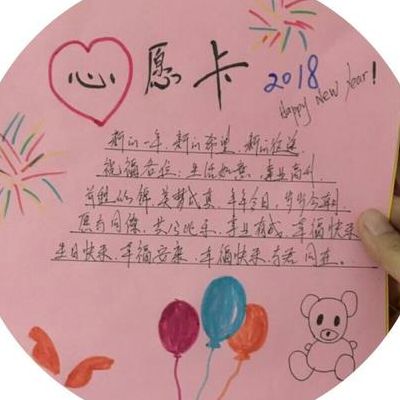 心愿卡
2018
Happy New Year!
新的一年、新的希望、新的征途、
祝福各位、生活如意、事业高升、
前程似锦、美梦成真、年年今日、岁岁今朝、
愿与同僚、共分此乐、事业有成、幸福快乐
生日快乐、幸福安康、幸福快乐、与君同在。